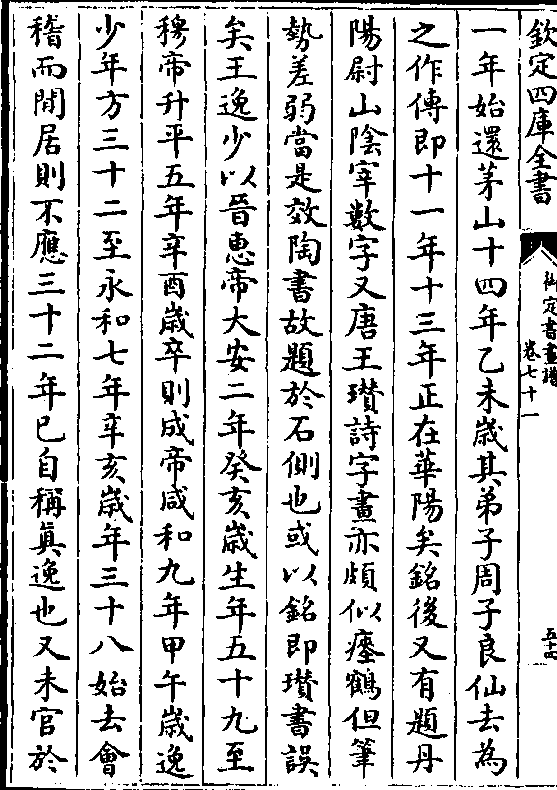 欽定四庫全書
御定書畫譜
卷七十一
五十四
一年始還茅山十四年乙未歳其弟子周子良仙去為
之作傳即十一年十三年正在華陽矣銘後又有題丹
陽尉山陰宰數字又唐王瓚詩字畫亦頗似瘞鶴但筆
勢差弱當是效陶書故題於石側也或以銘即瓚書誤
矣王逸少以晉惠帝大安二年癸亥歳生年五十九至
穆帝升平五年辛酉歳卒則成帝咸和九年甲午歳逸
少年方三十二至永和七年辛亥歳年三十八始去會
稽而閒居則不應三十二年已自稱真逸也又未官於